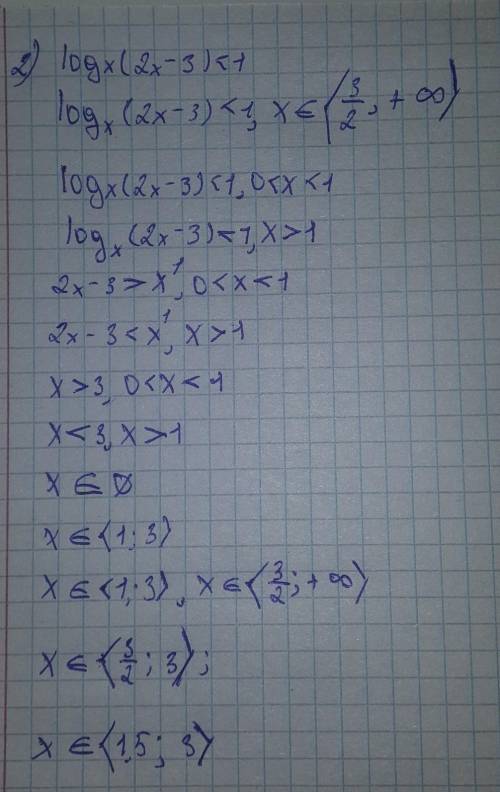 2) logₓ(2x-3)<1
logₓ(2x-3)<1, x∈⟨3/2; +∞⟩
logₓ(2x-3)<1, 0<x<1
logₓ(2x-3)<1, x>1
2x-3>x¹, 0<x<1
2x-3<x¹, x>1
x>3, 0<x<1
x<3, x>1
x∈∅
x∈⟨1; 3⟩
x∈⟨1; 3⟩, x∈⟨3/2; +∞⟩
x∈⟨3/2; 3⟩;
x∈⟨1,5; 3⟩